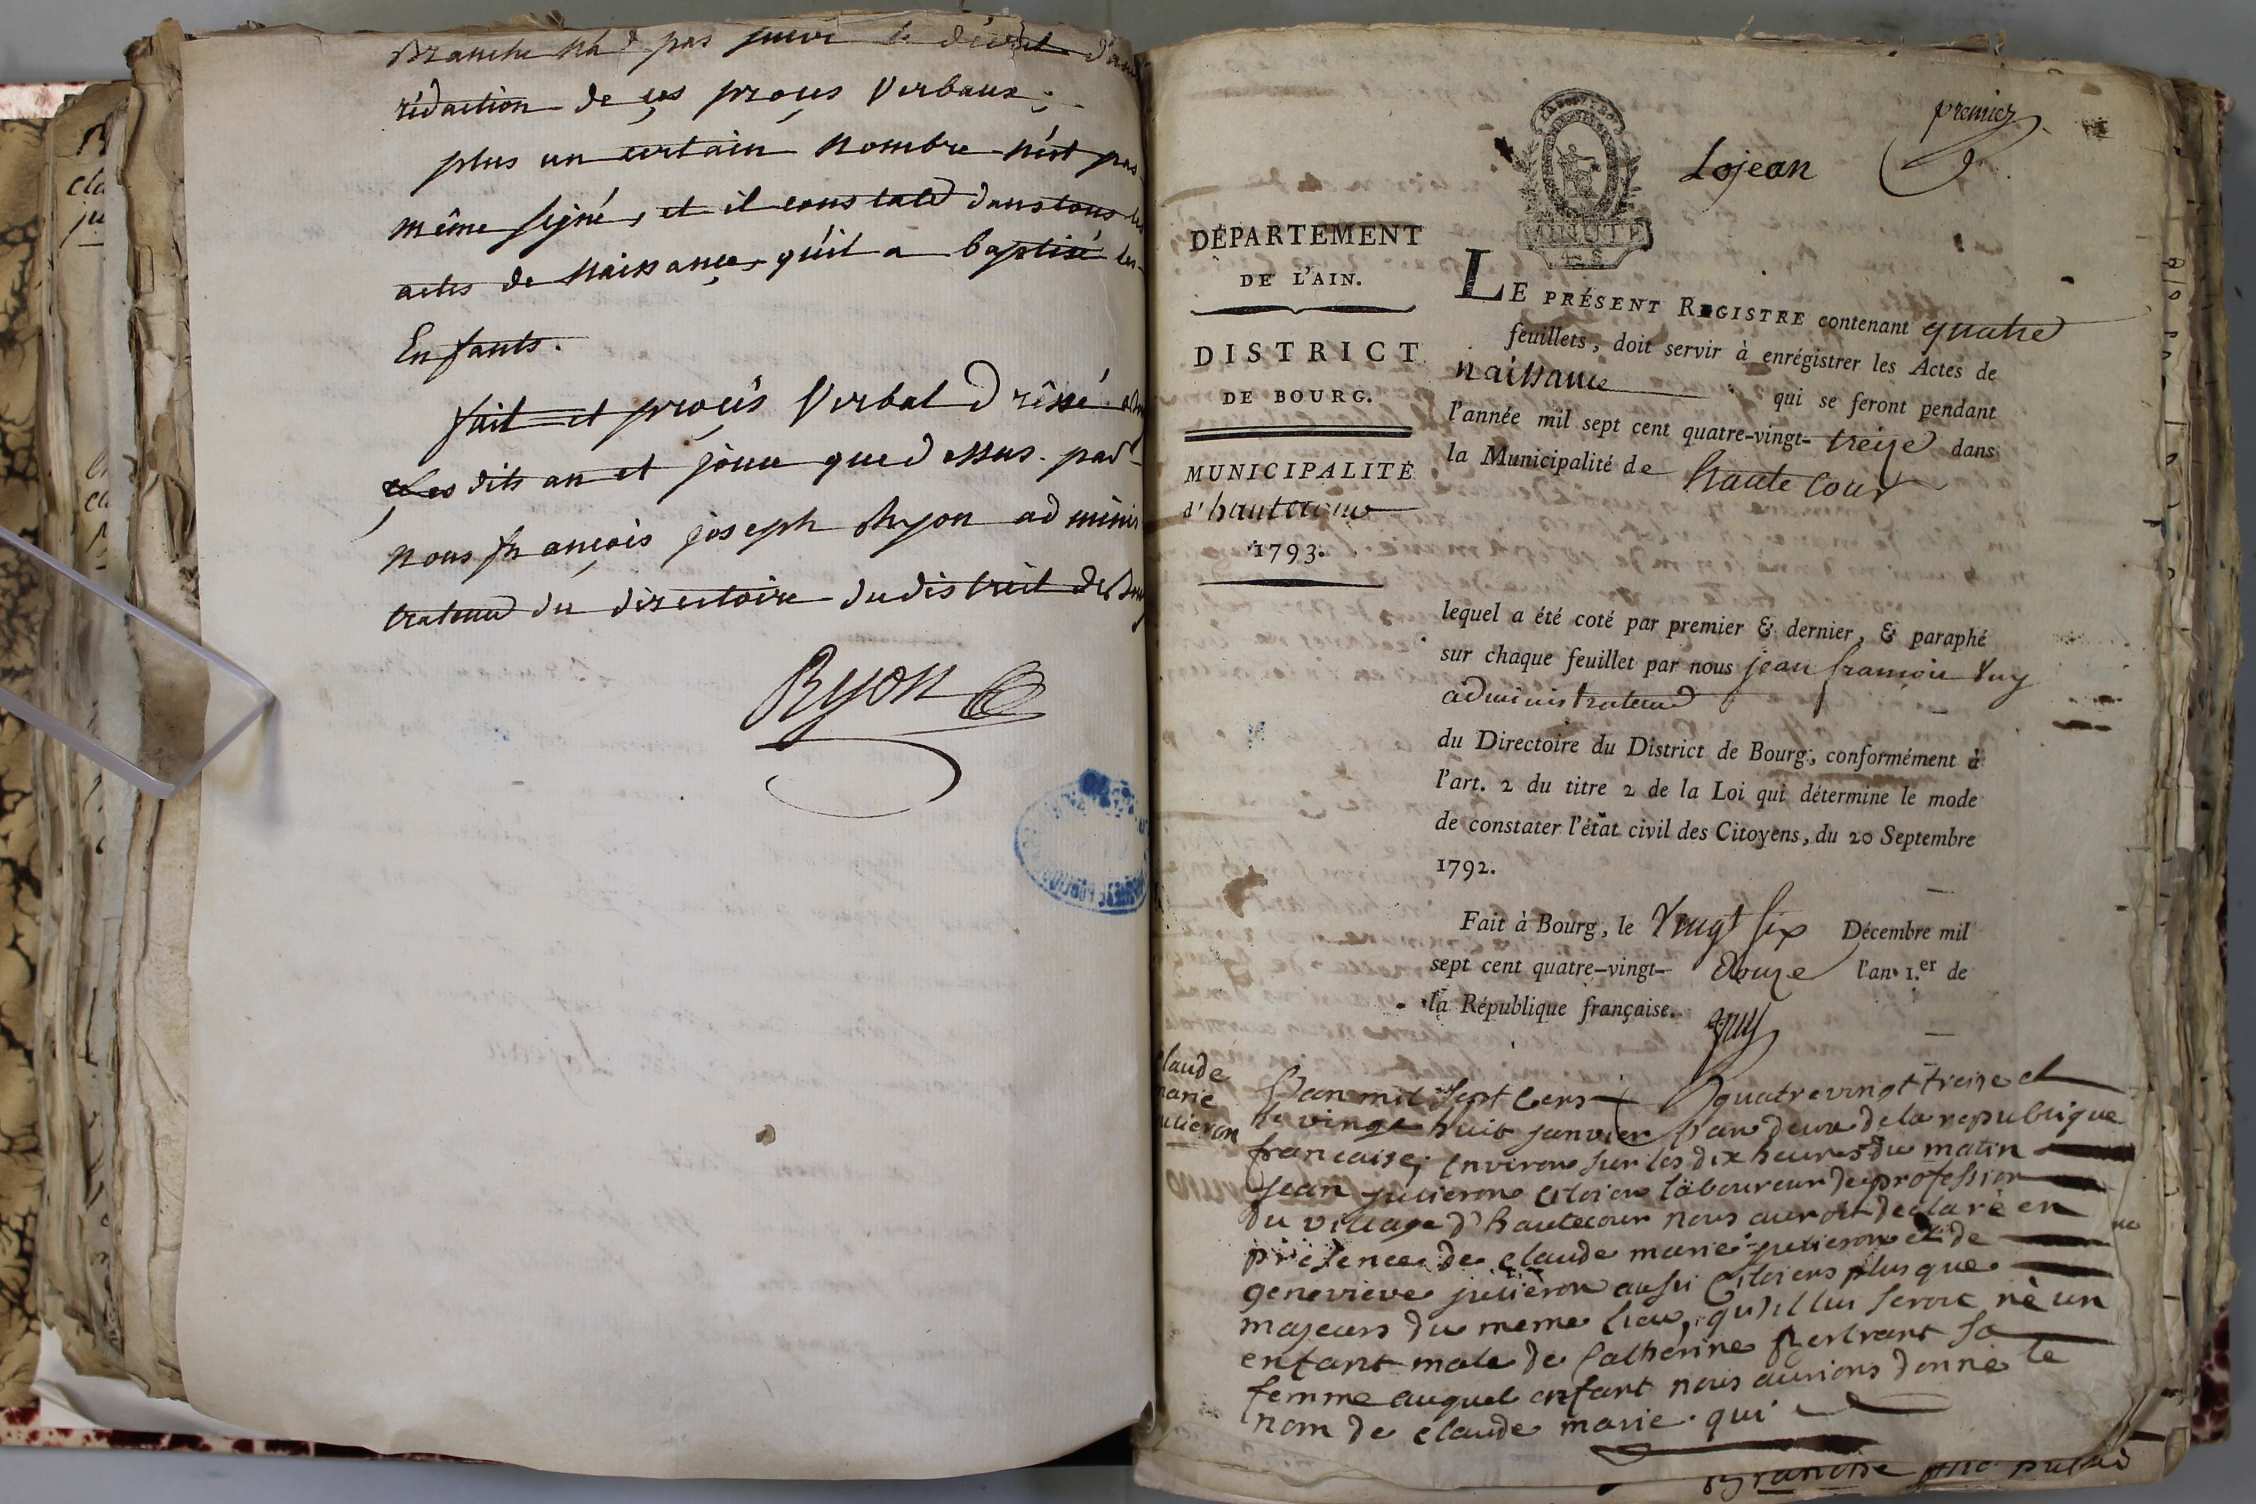 Branche n'a pas suivi le décret dans
rédaction de ces procès Verbaux;
plus un certain nombre n'est pas
même signé, et il constate dans tous les
actes de Naissance, qu'il a baptisé les
Enfants.
fait et procès Verbal dréssé
les dits an et jour que dessus. par
nous françois joseph Ryon adminis
trateur du directoire du district de Bourg
Ryon
premier
Lojean
MINUTE
DÉPARTEMENT
DE L'AIN.
DISTRICT
DE BOURG.
MUNICIPALITÉ
d'hautecour
1793.
LE PRÉSENT REGISTRE contenant quatre
feuillets, doit servir à enrégistrer les Actes de
naissance qui se feront pendant
l'année mil sept cent quatre-vingt-treize dans
la Municipalité de haute cour
lequel a été coté par premier & dernier, & paraphé
sur chaque feuillet par nous jean francois Vuy
administrateur
du Directoire du District de Bourg, conformément à
l'art. 2 du titre 2 de la Loi qui détermine le mode
de constater l'état civil des Citoyens, du 20 Septembre
1792.
Fait à Bourg, le Vingt six Décembre mil
sept cent quatre-vingt-douze l'an 1.er de
la République française.
Vuy
claude
marie
julieron
L'an mil sept cens quatre vingt treize et
le vingt huit janvier l'an deux de la republique
francaise, environ sur les dix heures du matin
jean julieron citoien laboureur de profession
du village d'hautecour nous auroit declaré en
présence de claude marie julieron et de
genevieve julieron aussi citoiens plus que
majeurs du meme lieu, qu'il lui seroit né un
enfant male de Catherine sa
femme auquel enfant nous aurions donné le
nom de claude marie. qui
Branche